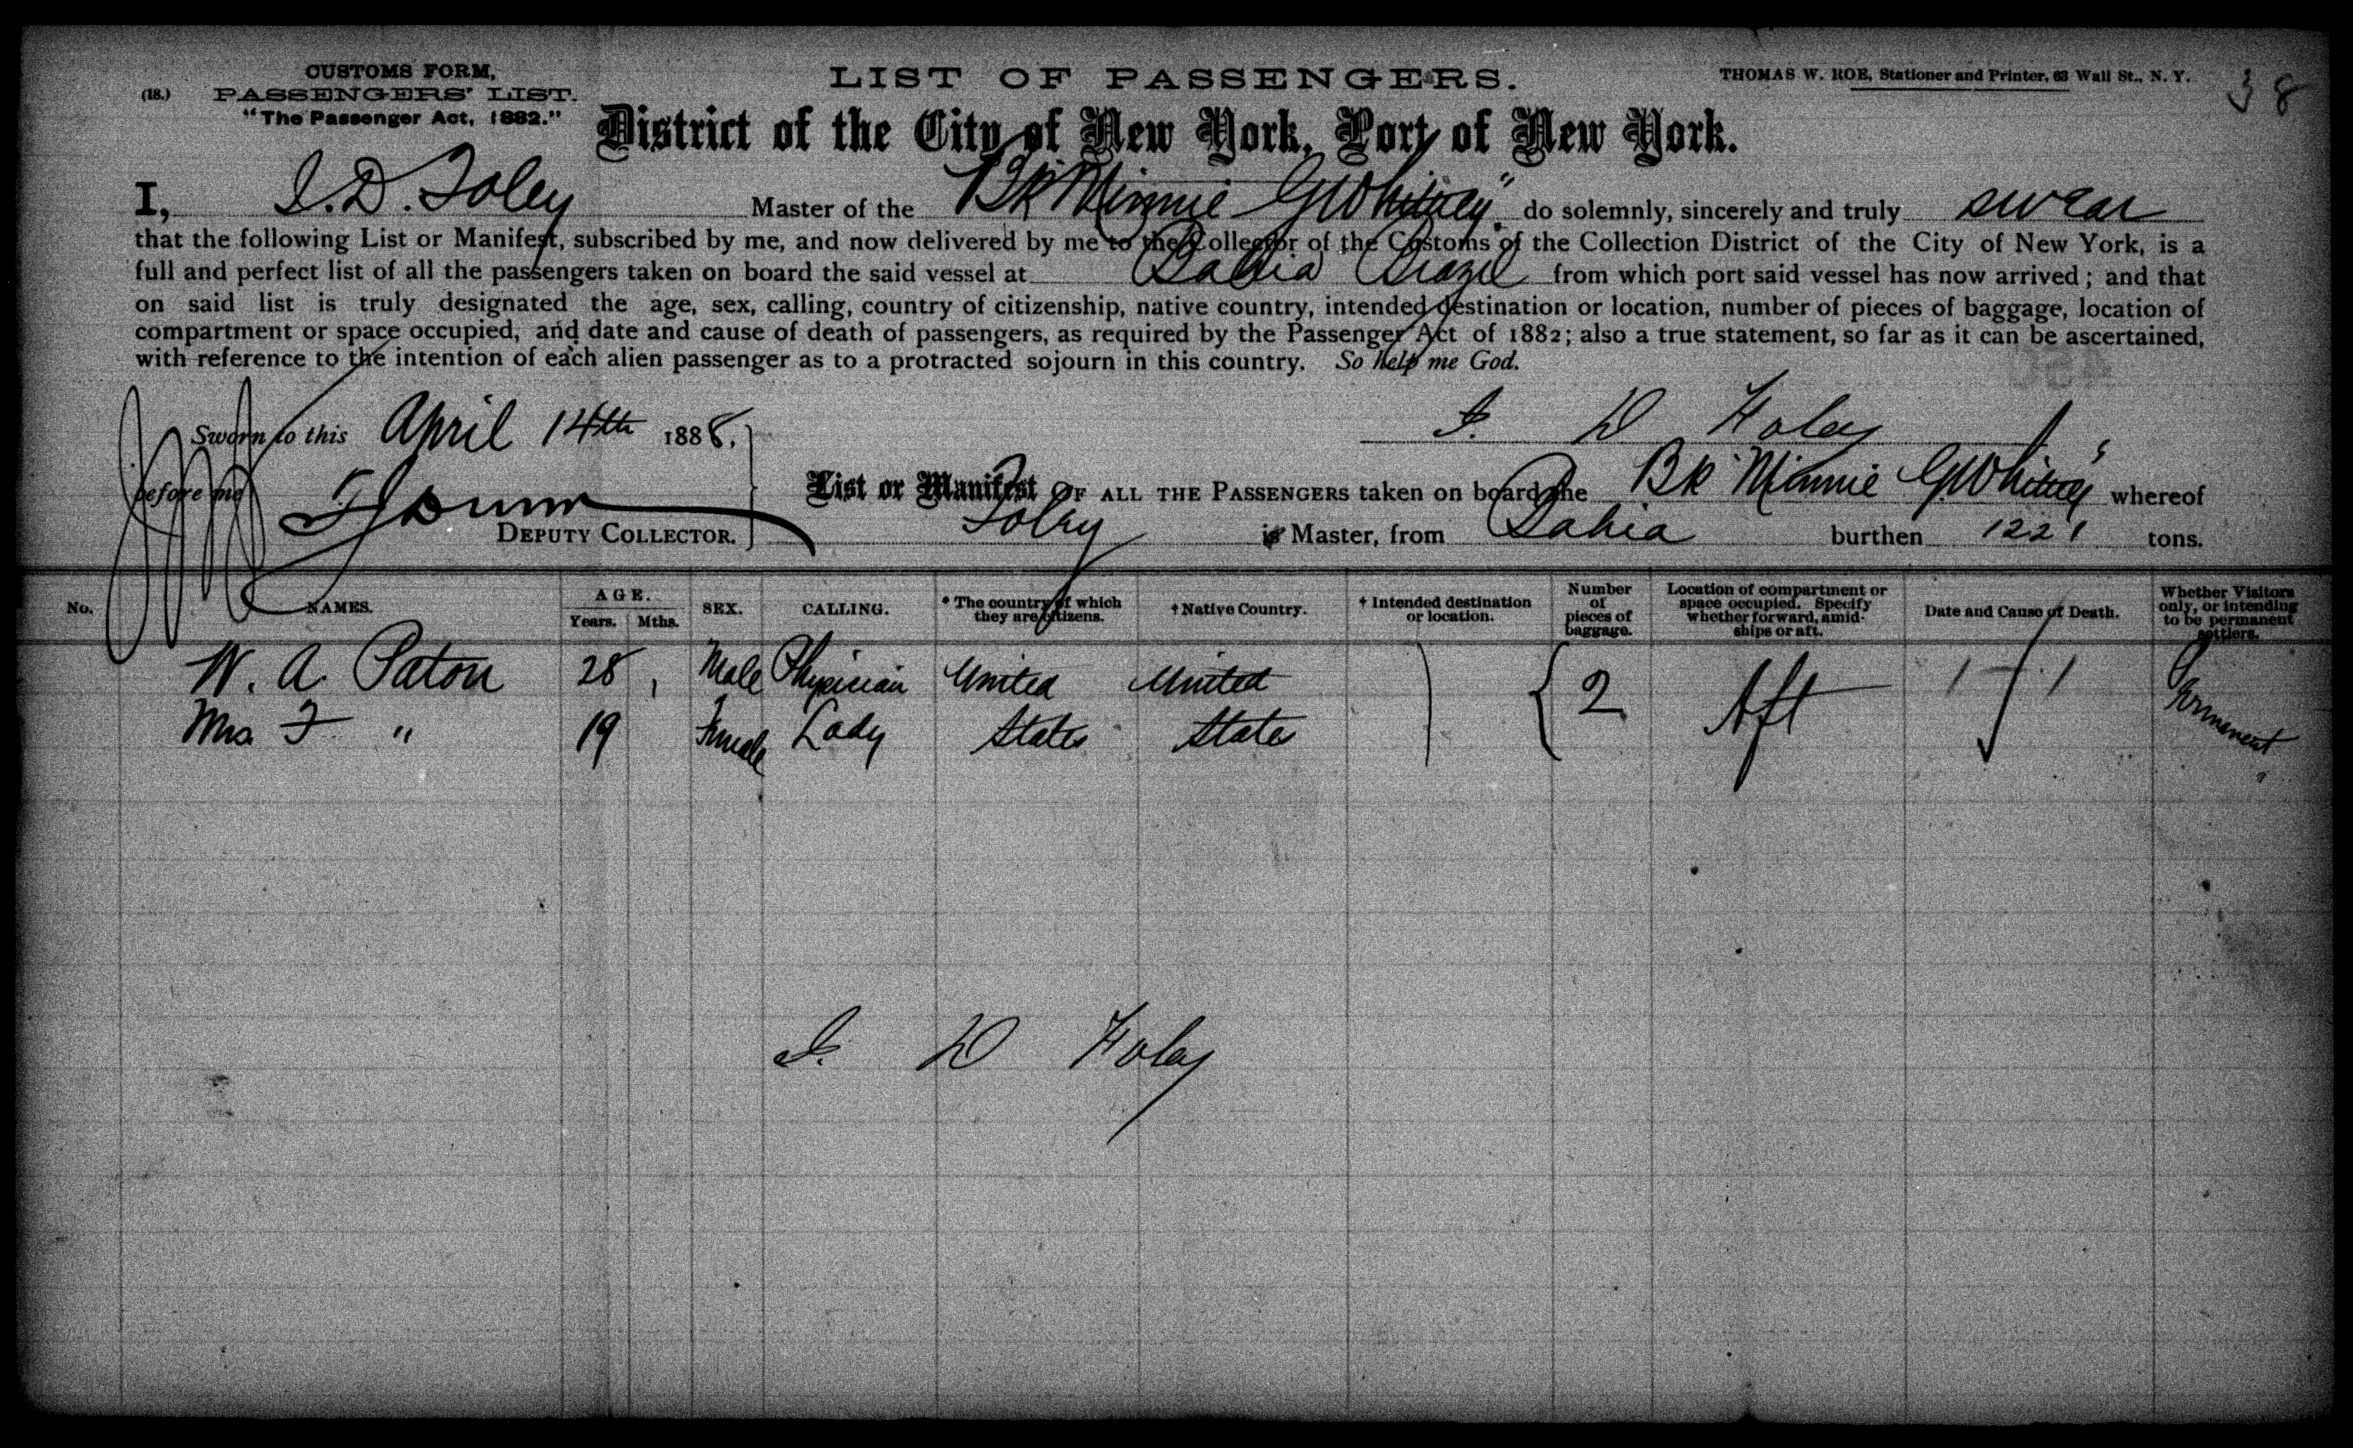 CUSTOMS FORM,
(18.) PASSENGERS' LIST.
"The Passenger Act, 1882."
LIST OF PASSENGERS.
THOMAS W. ROE, Stationer and Printer, 63 Wall St., N. Y.
38
District of the City of New York, Port of New York.
I, I. D. Foley Master of the Bk "Minnie G Whitney" do solemnly, sincerely and truly swear
that the following List or Manifest, subscribed by me, and now delivered by me to the Collector of the Customs of the Collection District of the City of New York, is a
full and perfect list of all the passengers taken on board the said vessel at Bahia Brazil from which port said vessel has now arrived; and that
on said list is truly designated the age, sex, calling, country of citizenship, native country, intended destination or location, number of pieces of baggage, location of
compartment or space occupied, and date and cause of death of passengers, as required by the Passenger Act of 1882; also a true statement, so far as it can be ascertained,
with reference to the intention of each alien passenger as to a protracted sojourn in this country. So help me God.
Sworn to this April 14th 1888.
I. D Foley
before me
DEPUTY COLLECTOR.
List or Manifest OF ALL THE PASSENGERS taken on board the Bk "Minnie G Whitney" whereof
Foley is Master, from Bahia burthen 1221 tons.
No. NAMES. AGE. Years. Mths. SEX. CALLING. * The country of which they are citizens. † Native Country. † Intended destination or location. Number of pieces of baggage. Location of compartment or space occupied. Specify whether forward, amidships or aft. Date and Cause of Death. Whether Visitors only, or intending to be permanent settlers.
W. A. Paton 28 Male Physician United United 2 Aft Permanent
Mrs F " 19 Female Lady States States "
I. D Foley